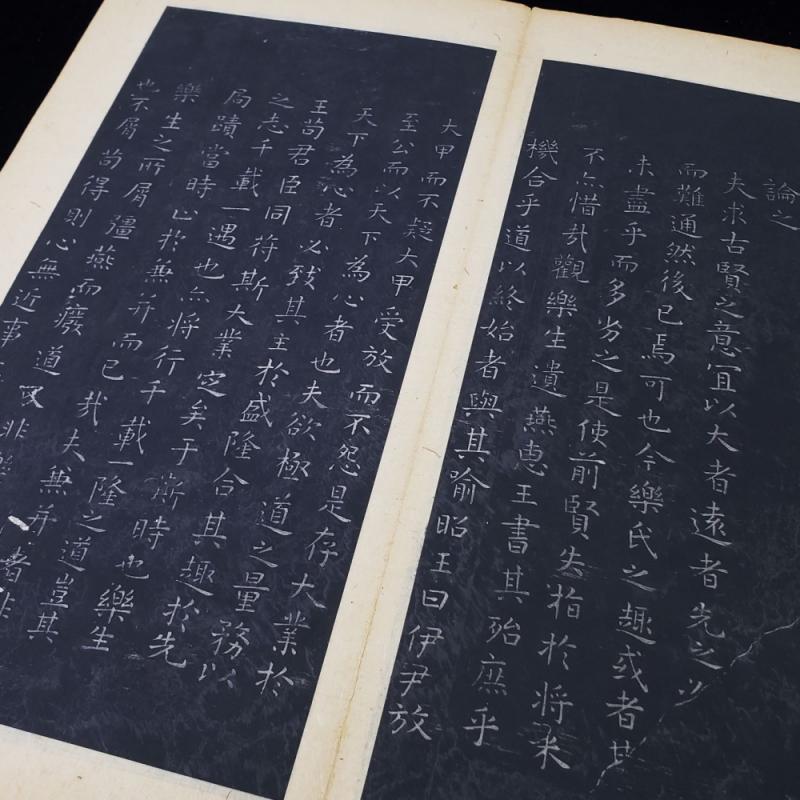 論之
夫求古賢之意冝以大者遠者先之必
而難通然後已焉可也今樂氏之趣或者其
未盡乎而多劣之是使前賢失指於將来
不亦惜哉觀樂生遺燕惠王書其殆庶乎
機合乎道以終始者與其喻昭王曰伊尹放
大甲而不疑大甲受放而不怨是存大業於
至公而以天下為心者也夫欲極道之量務以
天下為心者必致其主於盛隆合其趣於先
王苟君臣同符斯大業定矣于斯時也樂生
之志千載一遇也亦將行千載一隆之道豈其
局蹟當時止於兼并而已哉夫兼并者非
樂生之所屑彊燕而廢道又非
也不屑苟得則心無近事